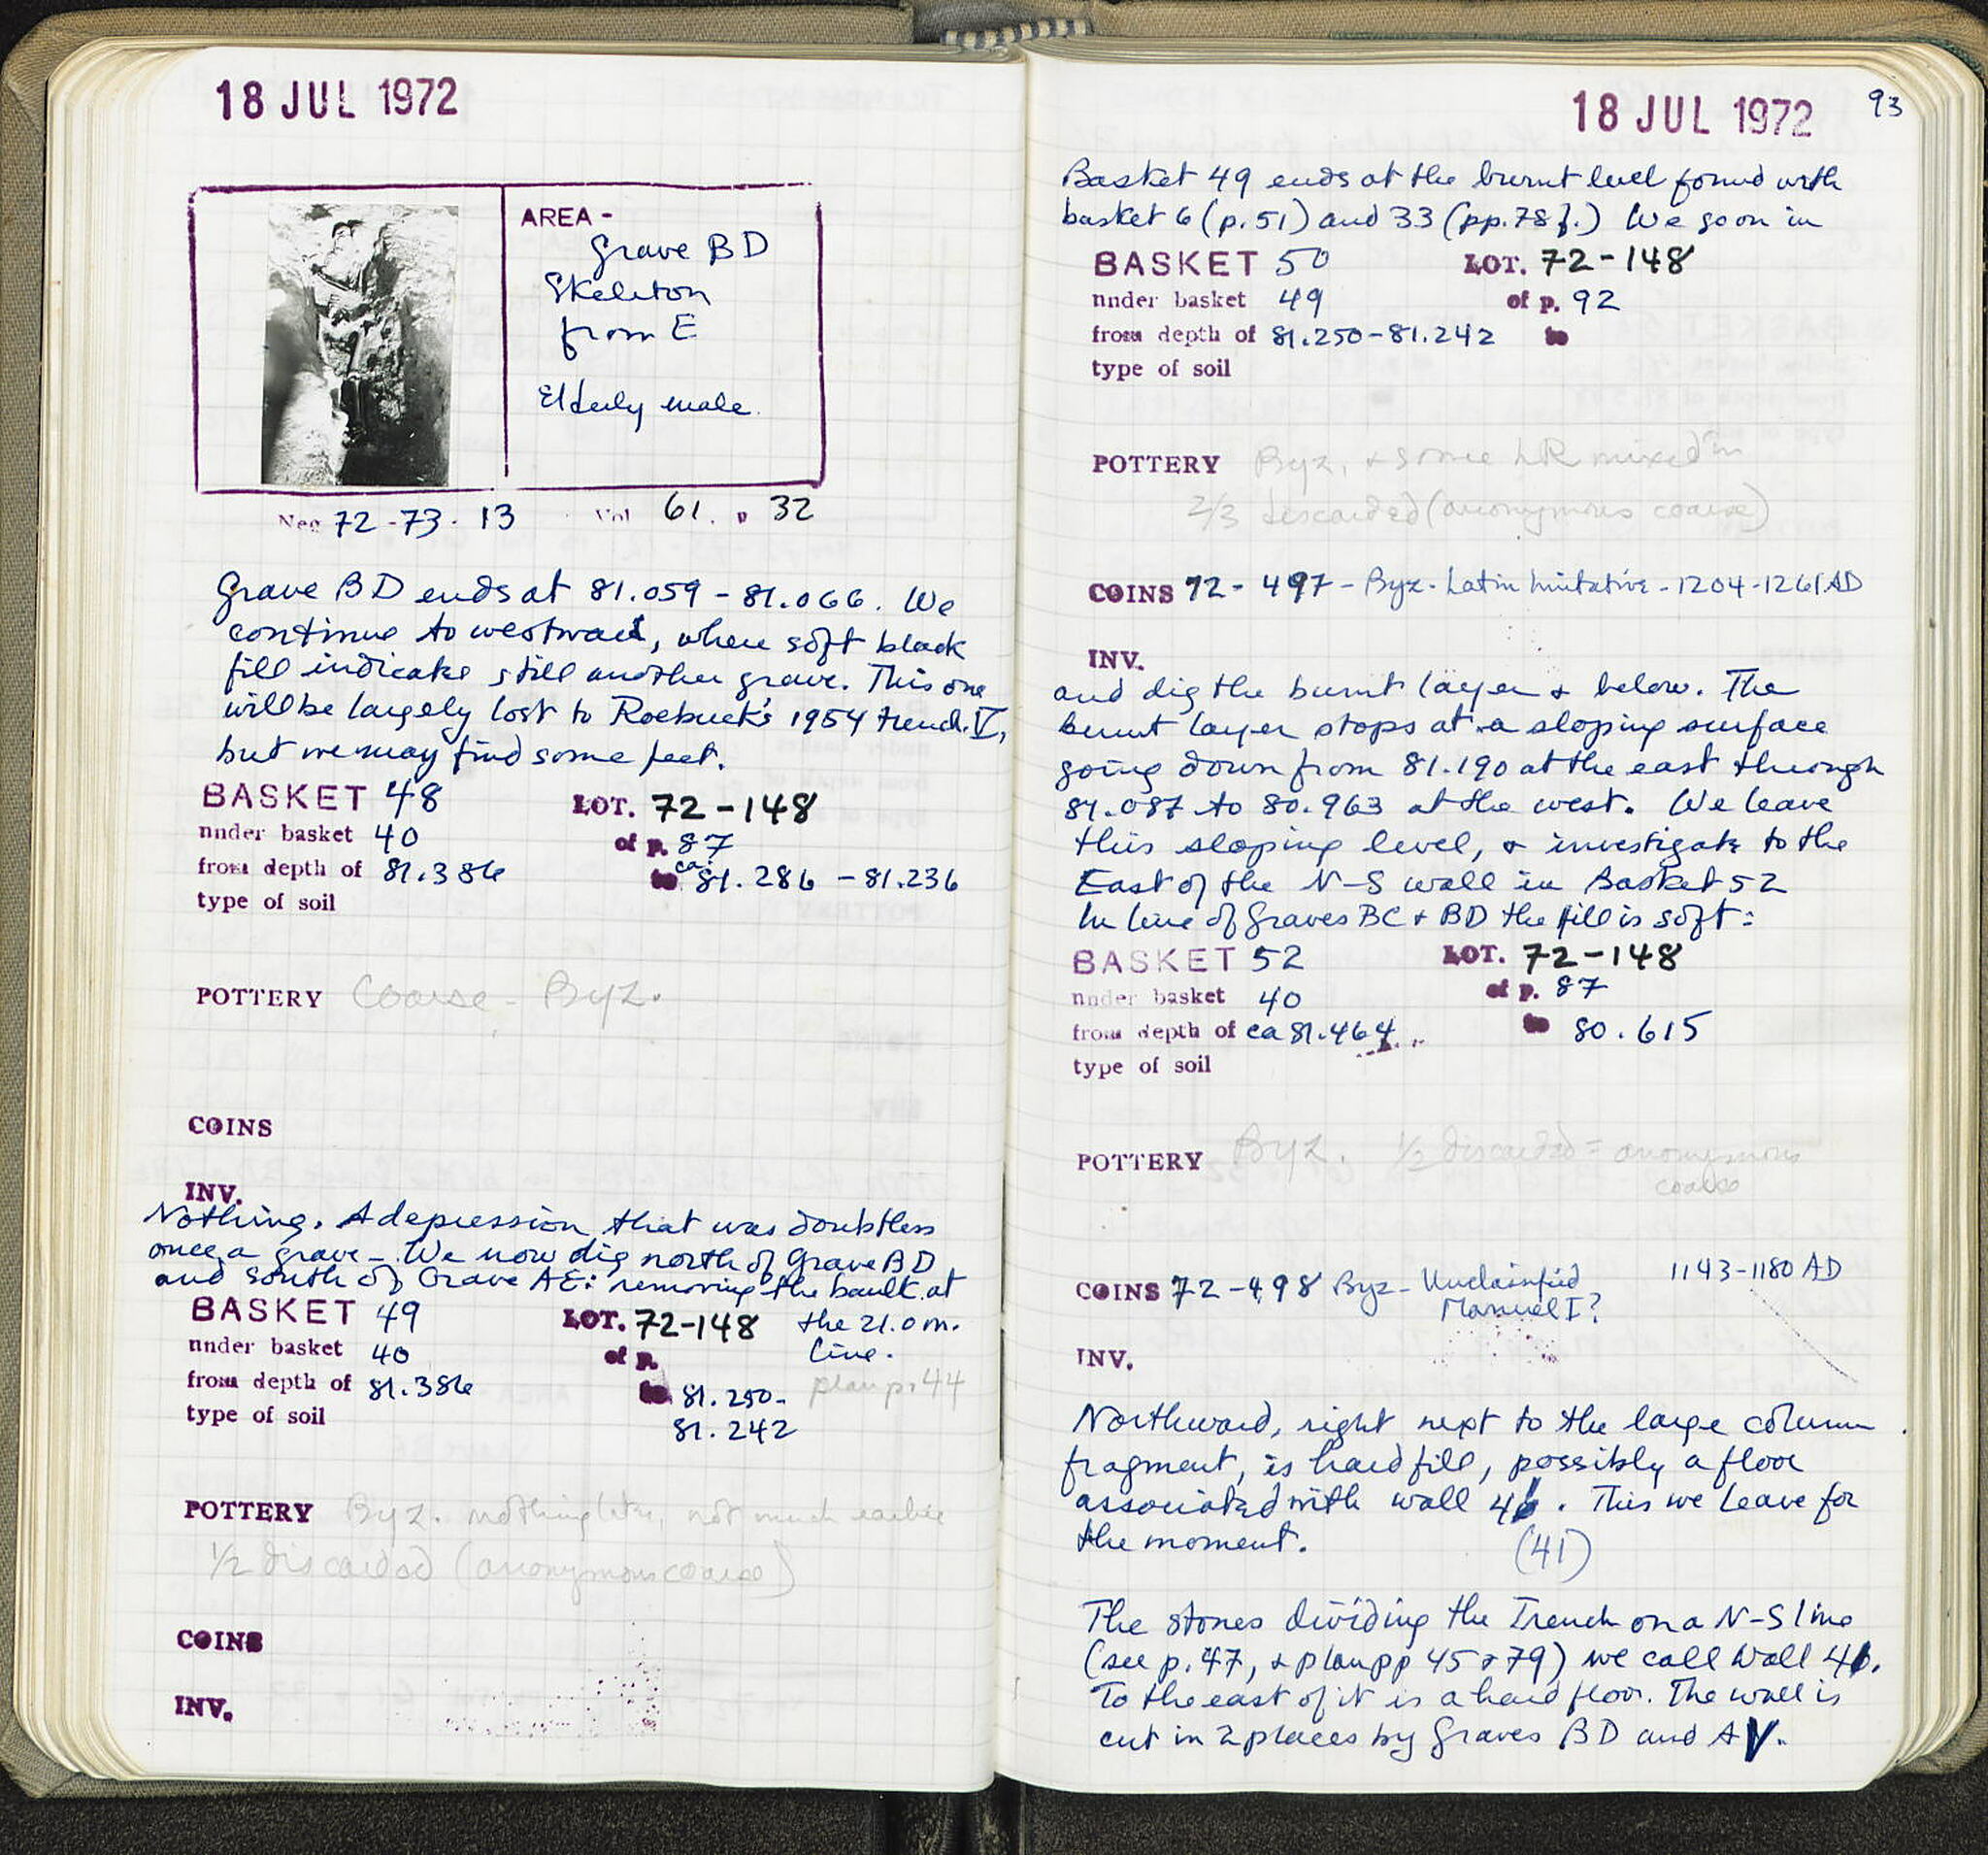 18 JUL 1972
AREA -
Grave BD
Skeleton
from E
Elderly male.
Neg 72-73-13 Vol 61. p 32
Grave BD ends at 81.059 - 81.066. We
continue to westward, where soft black
fill indicates still another grave. This one
will be largely lost to Roebuck's 1954 trench V,
but we may find some feet.
BASKET 48 LOT. 72-148
under basket 40 of p. 87
from depth of 81.386 to ca 81.286 - 81.236
type of soil
POTTERY Coarse - Byz.
COINS
INV.
Nothing. A depression that was doubtless
once a grave - We now dig north of Grave BD
and south of Grave AE: removing the baulk at
BASKET 49 LOT. 72-148 the 21.0 m.
under basket 40 of p. line.
from depth of 81.386 to 81.250- plan p. 44
type of soil 81.242
POTTERY Byz. nothing later, not much earlier
1/2 discarded (anonymous coarse)
COINS
INV.
18 JUL 1972 93
Basket 49 ends at the burnt level found with
basket 6 (p.51) and 33 (pp.78f.) We go on in
BASKET 50 LOT. 72-148
under basket 49 of p. 92
from depth of 81.250-81.242 to
type of soil
POTTERY Byz, + some LR mixed in
2/3 discarded (anonymous coarse)
COINS 72-497 - Byz - Latin Imitative - 1204-1261 AD
INV.
and dig the burnt layer + below. The
burnt layer stops at a sloping surface
going down from 81.190 at the east through
81.087 to 80.963 at the west. We leave
this sloping level, + investigate to the
East of the N-S wall in Basket 52
In line of Graves BC + BD the fill is soft:
BASKET 52 LOT. 72-148
under basket 40 of p. 87
from depth of ca 81.464 to 80.615
type of soil
POTTERY Byz. 1/2 discarded = anonymous
coarse
COINS 72-498 Byz - Unclassified 1143-1180 AD
Manuel I?
INV.
Northward, right next to the large column
fragment, is hard fill, possibly a floor
associated with wall 4. This we leave for
the moment. (41)
The stones dividing the Trench on a N-S line
(see p. 47, + plan pp 45 + 79) we call Wall 41.
To the east of it is a hard floor. The wall is
cut in 2 places by Graves BD and AV.